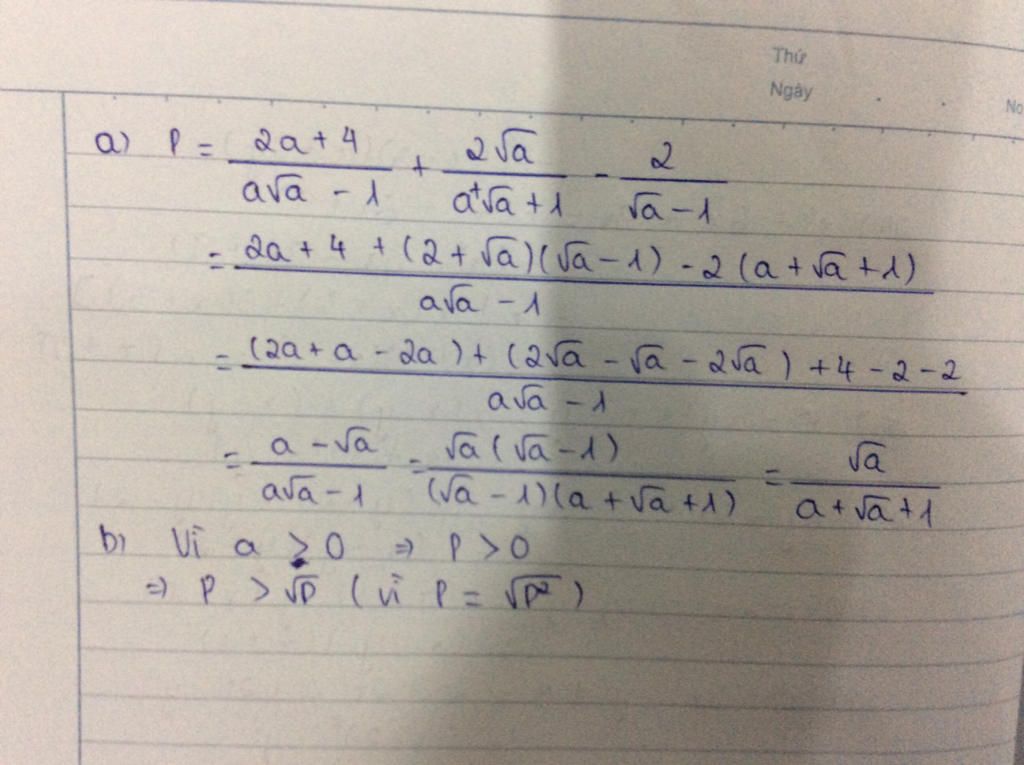 Thứ
Ngày
No
a) P = (2a + 4)/(a√a - 1) + (2√a)/(a+√a + 1) - 2/(√a - 1)
= (2a + 4 + (2 + √a)(√a - 1) - 2(a + √a + 1))/(a√a - 1)
= ((2a + a - 2a) + (2√a - √a - 2√a) + 4 - 2 - 2)/(a√a - 1)
= (a - √a)/(a√a - 1) = (√a(√a - 1))/((√a - 1)(a + √a + 1)) = √a/(a + √a + 1)
b) Vì a ≥ 0 ⇒ P > 0
⇒ P > √P (vì P = √P²)